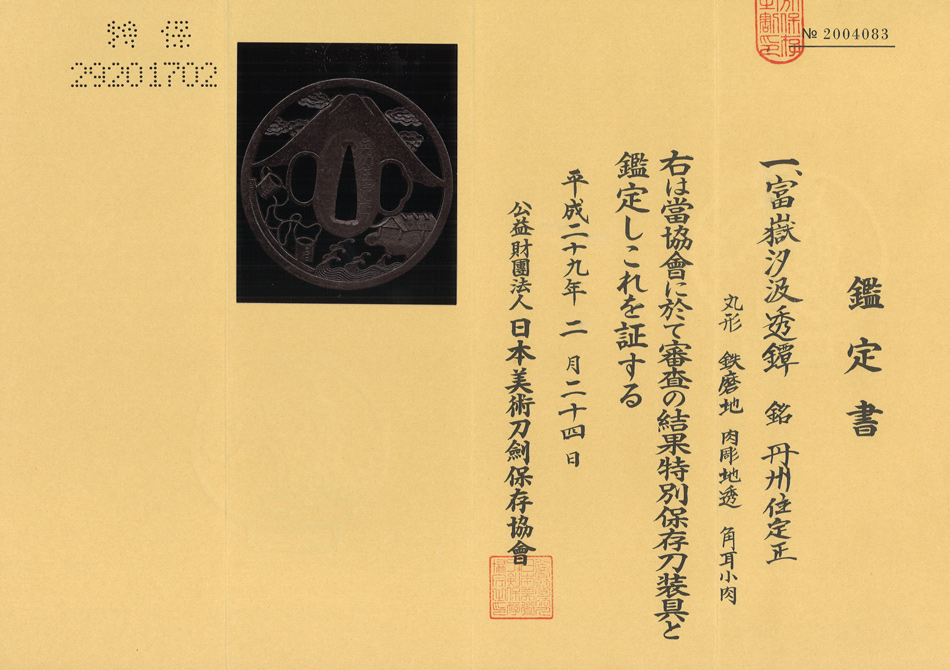 № 2004083
鑑定書
一、富嶽汐汲透鐔 銘 丹州住定正
丸形 鉄磨地 肉彫地透 角耳小肉
右は當協會に於て審査の結果特別保存刀装具と
鑑定しこれを証する
平成二十九年 二 月二十四日
公益財團法人 日本美術刀劍保存協會
特 保
29201702